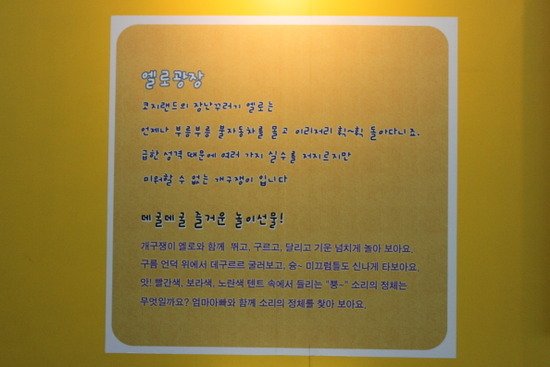 옐로광장
코지랜드의 장난꾸러기 옐로는
언제나 부릉부릉 불자동차를 몰고 이리저리 휙~휙 돌아다니죠.
급한 성격 때문에 여러 가지 실수를 저지르지만
미워할 수 없는 개구쟁이 입니다
데굴데굴 즐거운 놀이선물!
개구쟁이 옐로와 함께 뛰고, 구르고, 달리고 기운 넘치게 놀아 보아요.
구름 언덕 위에서 데구르르 굴러보고, 슝~ 미끄럼틀도 신나게 타보아요.
앗! 빨간색, 보라색, 노란색 텐트 속에서 들리는 "뿡~" 소리의 정체는
무엇일까요? 엄마아빠와 함께 소리의 정체를 찾아 보아요.